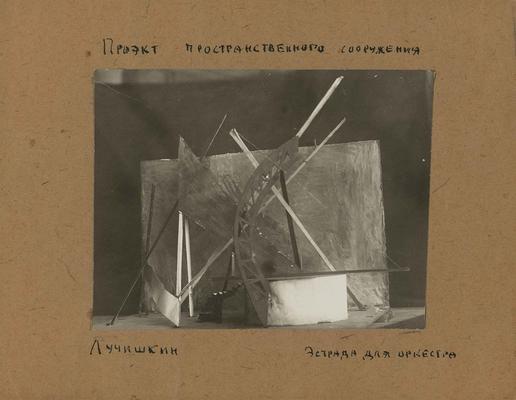 Проэкт пространственного сооружения
Лучишкин
Эстрада для оркестра